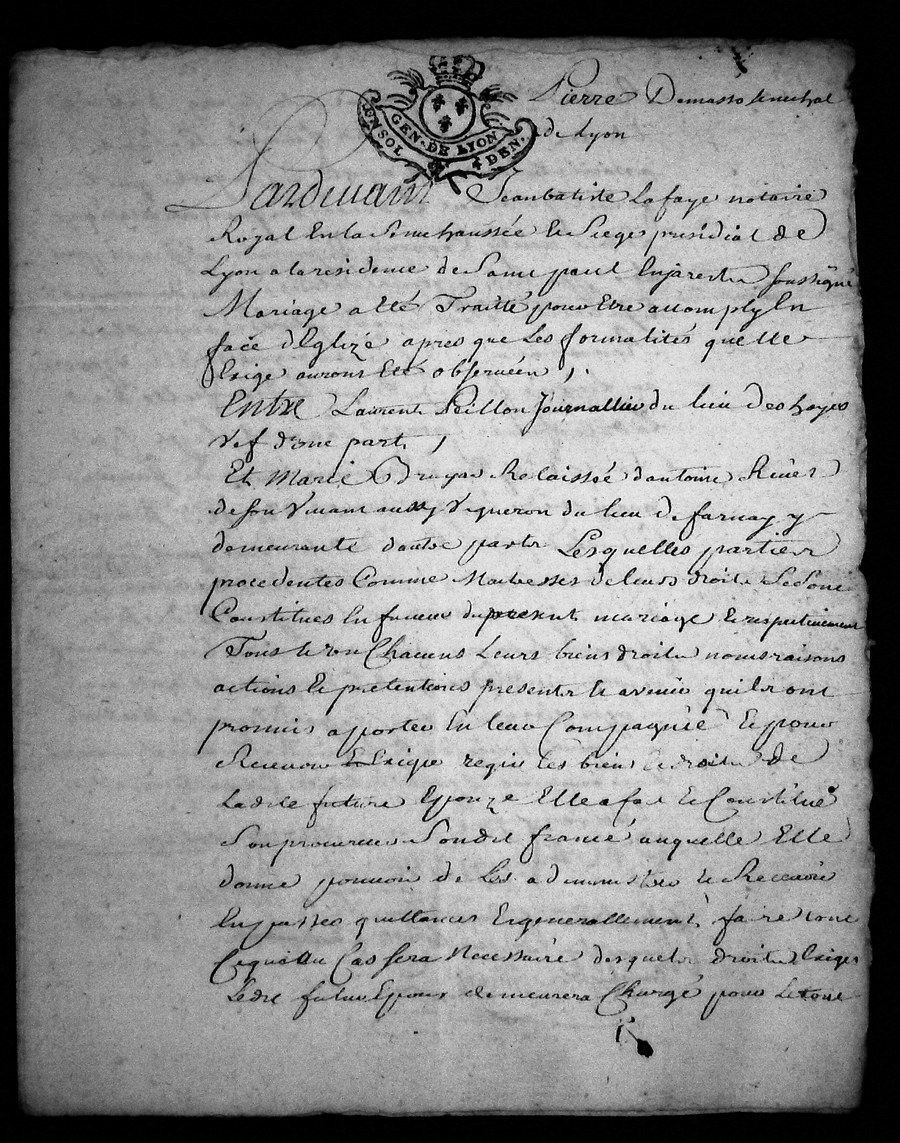 Pierre Demasso senechal
de Lyon
GEN. DE LYON
UN SOL 4 DEN.
Pardevant Jeanbatiste Lafaye notaire
Royal En la Senechaussée Et Siege presidial de
Lyon a la residence de Saint paul Enjarest soussigné
Mariage a Eté Traitté pour Etre accomply En
face d'Eglize apres que Les formalités quelle
Exige auront Eté observéen,.
Entre Laurent Peillon Journallier du lieu des hayes
Vef d'une part,
Et Marie Relaissée d'antoine
de son Vivant aussy Vigneron du lieu de farnay y
demeurante d'autre parts Lesquelles parties
procedentes Comme Maitresses de leurs droits Se Sont
Constitues En faveur du present mariage Et respectivement
Tous Et un Chacuns Leurs biens droits noms raisons
actions Et pretentions presents Et avenir quils ont
promis apporter En leur Compagnie Et pour
Recevoir Et Exiger les biens Et droits de
Ladite future Epouze Elle a fait Et Constitué
Son procureur Sondit auquelle Elle
donne pouvoir de Les administrer Et Recevoir
En passer quittances Et generallement faire tout
Ce quau Cas sera Necessaire desquels droits Exiges
Ledit futur Epoux demeurera Chargé pour Le tout